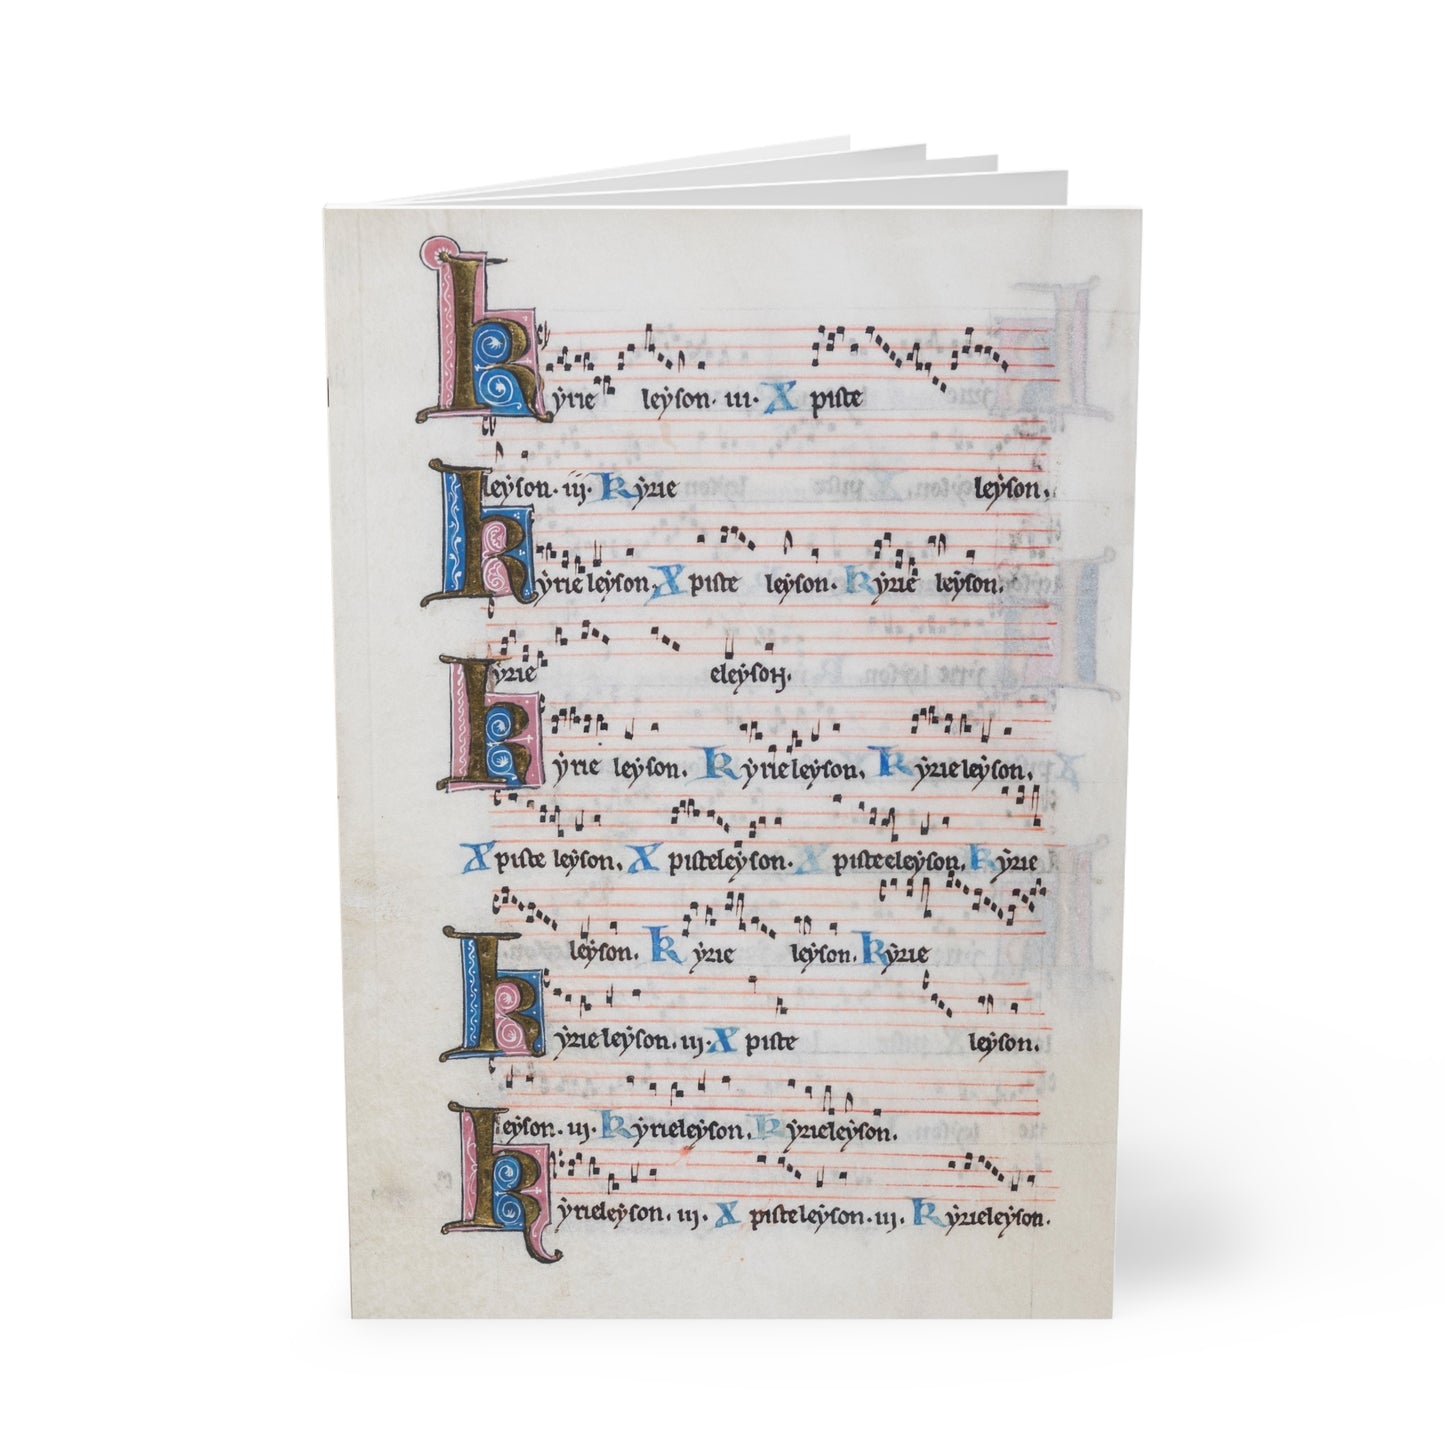 Kẏrie leẏson. iii. Xpiste
leẏson. iij. Kẏrie leẏson.
Kẏrie leẏson. Xpiste leẏson. Kẏrie leẏson.
Kẏrie eleẏson.
Kẏrie leẏson. Kẏrie leẏson. Kẏrie leẏson.
Xpiste leẏson. Xpiste leẏson. Xpiste eleẏson. Kẏrie
leẏson. Kẏrie leẏson. Kẏrie
Kẏrie leẏson. iij. Xpiste leẏson.
leẏson. iij. Kẏrieleẏson. Kẏrieleẏson.
Kẏrieleẏson. iij. Xpiste leẏson. iij. Kẏrieleẏson.